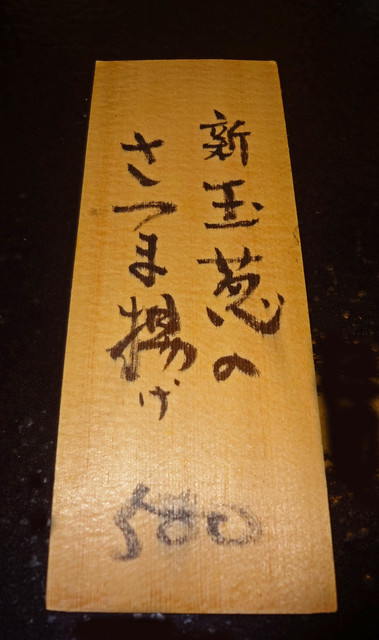 新玉葱の
さつま揚げ
500